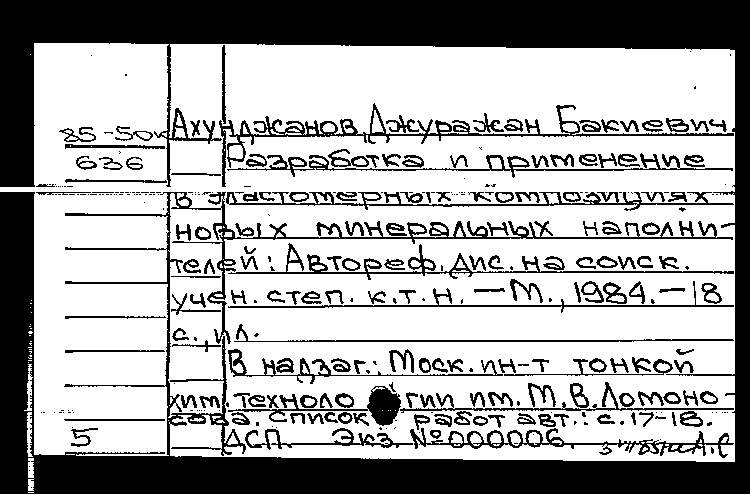 85-50к Ахунджанов, Джуражан Бакиевич.
636 Разработка и применение
в эластомерных композициях
новых минеральных наполни-
телей: Автореф. дис. на соиск.
учен. степ. к.т.н. — М., 1984. — 18
с., ил.
В надзаг.: Моск. ин-т тонкой
хим. техноло гии им. М.В. Ломоно-
сова. Список работ авт.: с. 17-18.
5 ДСП. Экз. № 000006.